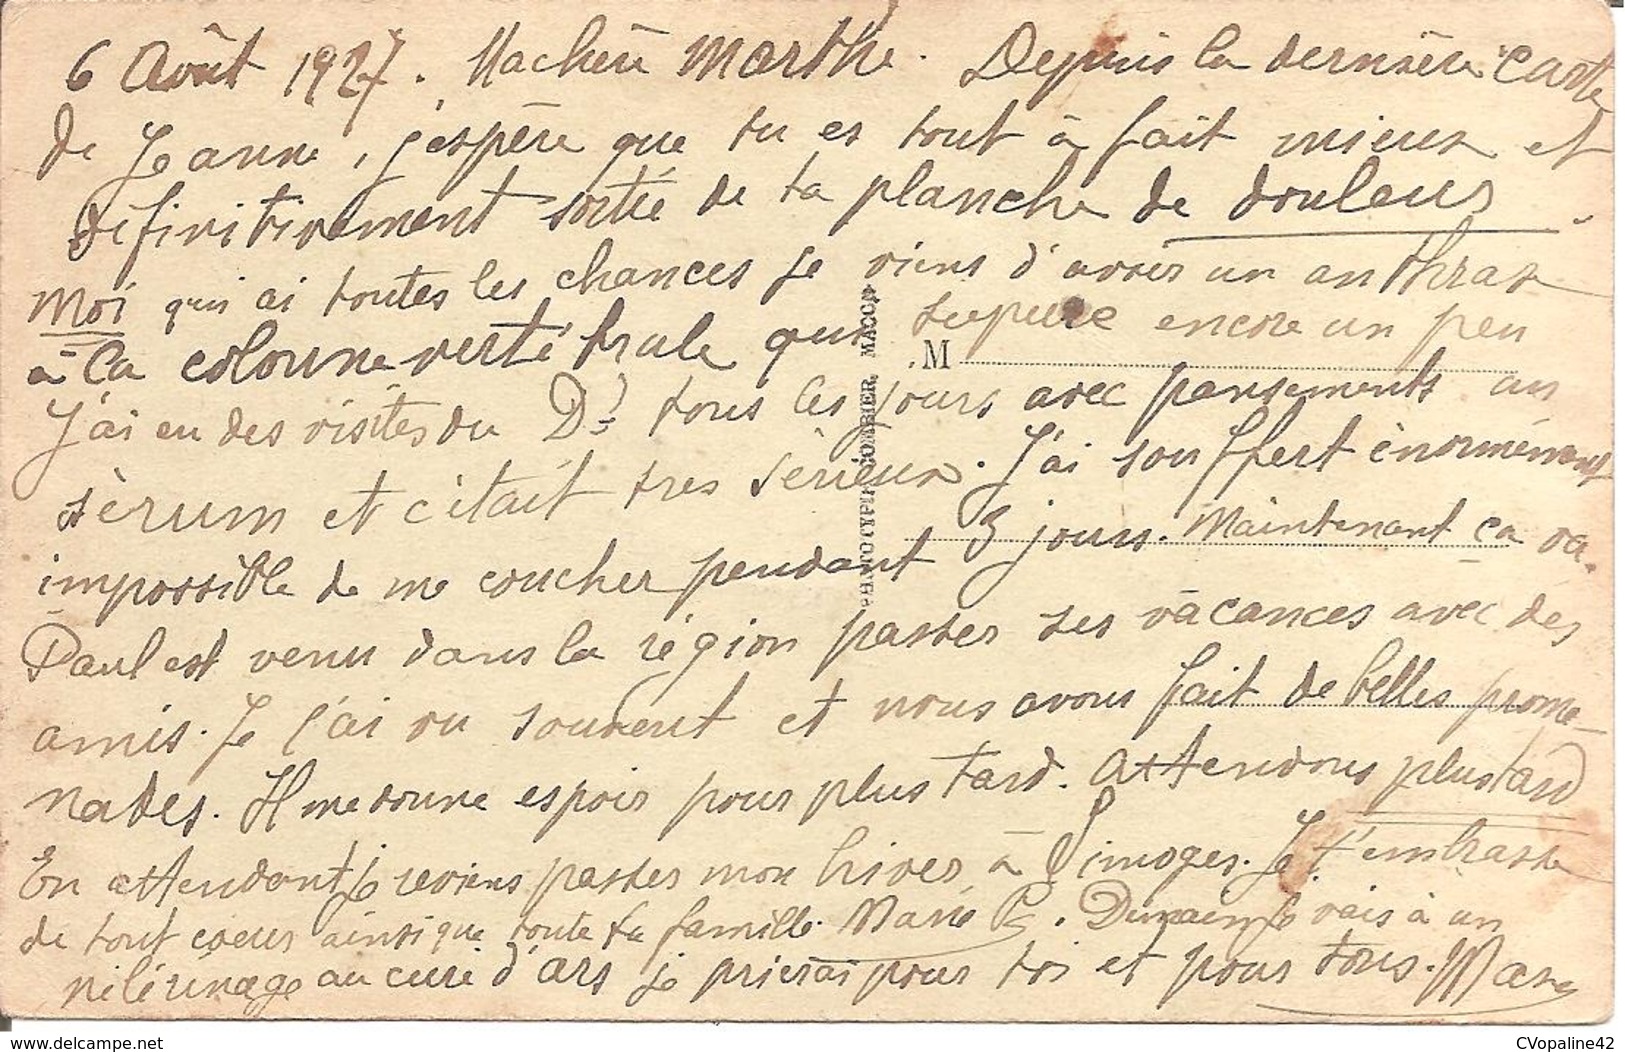 6 Août 1927. Machère Marthe. Depuis la dernière carte
de Jeanne, j'espère que tu es tout à fait mieux et
définitivement sortie de ta planche de douleurs.
Moi qui ai toutes les chances je viens d'avoir un anthrax
à la colonne vertébrale qui supure encore un peu
M
J'ai eu des visites du Dr tous les jours avec pansements au
sèrum et c'était très sérieux. J'ai souffert énormément
impossible de me coucher pendant 3 jours. Maintenant ça va.
Paul est venu dans la région passer ses vacances avec des
amis. Je l'ai vu souvent et nous avons fait de belles prome-
nades. Il me donne espoir pour plus tard. Attendons plus tard
En attendant je reviens passer mon hiver à Limoges. Je t'embrasse
de tout coeur ainsi que toute ta famille. Marie G. Demain je vais à un
pélérinage au curé d'ars je prierai pour toi et pour tous. Marie
COMBIER MACON
CVopaline42